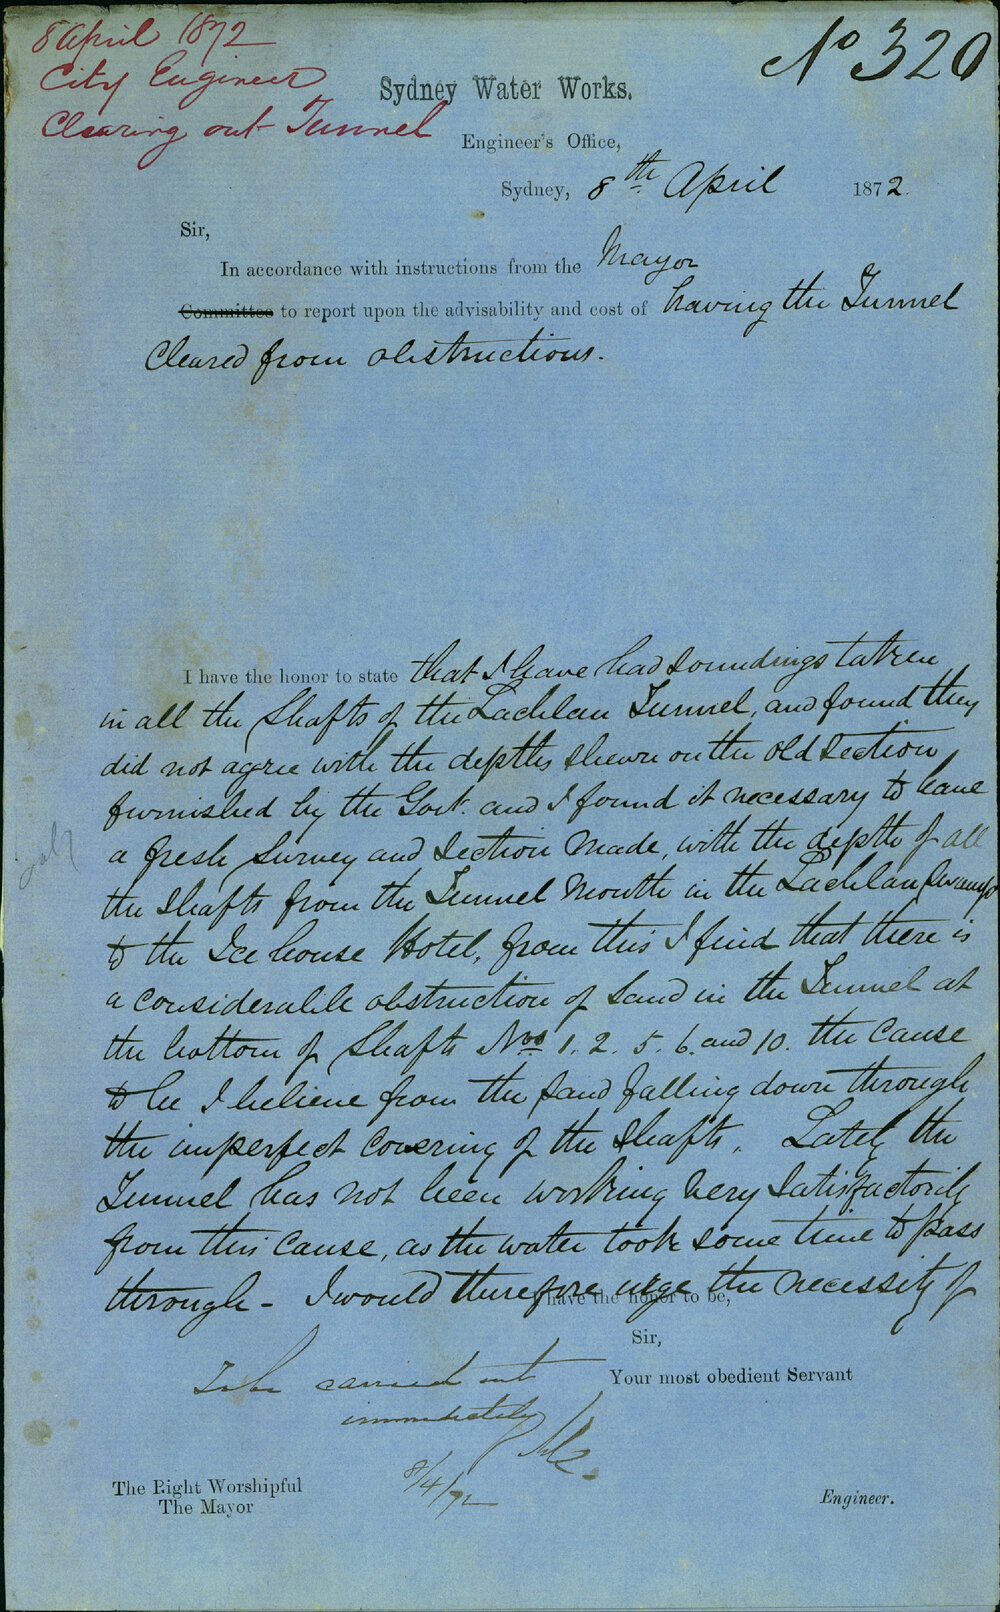 8 April 1872
City Engineer
Clearing out Tunnel
No 320
Sydney Water Works.
Engineer's Office,
Sydney, 8th April 1872.
Sir,
In accordance with instructions from the Mayor
Committee to report upon the advisability and cost of having the Tunnel
Cleared from obstructions.
I have the honor to state that I have had soundings taken
in all the Shafts of the Lachlan Tunnel, and found they
did not agree with the depths shewn on the old Section
furnished by the Govt. and I found it necessary to have
a fresh Survey and Section Made, with the depth of all
the Shafts from the Tunnel Mouth in the Lachlan Swamp
to the Ice house Hotel, from this I find that there is
a considerable obstruction of Sand in the Tunnel at
the bottom of Shafts Nos 1. 2. 5. 6. and 10. the Cause
to be I believe from the Sand falling down through
the imperfect Covering of the Shafts. Lately the
Tunnel has not been working very Satisfactorily
from this Cause, as the water took some time to pass
through - I would therefore urge the necessity of
I have the honor to be,
Sir,
Your most obedient Servant
To be carried out
immediately
8/4/72
The Right Worshipful
The Mayor
Engineer.